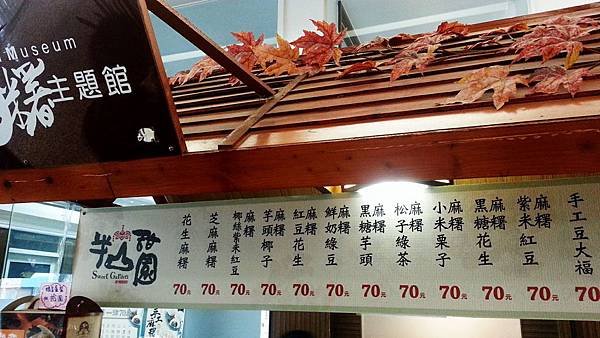 Museum
糬主題館
半山甜園
Sweet Garden
花生麻糬
70元
芝麻麻糬
70元
椰絲紫米紅豆
麻糬
70元
芋頭椰子
麻糬
70元
紅豆花生
麻糬
70元
鮮奶綠豆
麻糬
70元
黑糖芋頭
麻糬
70元
松子綠茶
麻糬
70元
小米栗子
麻糬
70元
黑糖花生
麻糬
70元
紫米紅豆
麻糬
70元
手工豆大福
70元